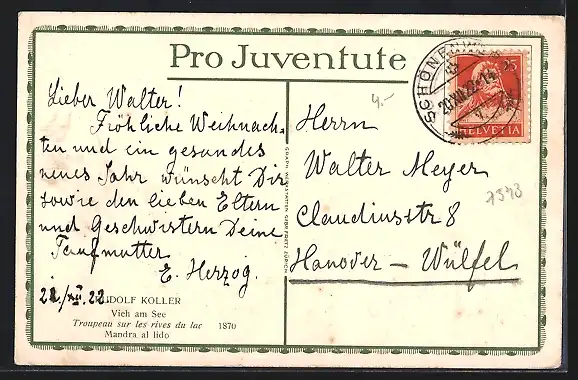 Pro Juventute
Lieber Walter!
Fröhliche Weihnach-
ten und ein gesundes
neues Jahr wünscht Dir
sowie den lieben Eltern
und Geschwistern Deine
Taufmutter
E. Herzog.
RUDOLF KOLLER
Vieh am See
Troupeau sur les rives du lac 1870
Mandra al lido
4.-
25
HELVETIA
Herrn
Walter Meyer
Claudiusstr 8
Hanover – Wülfel